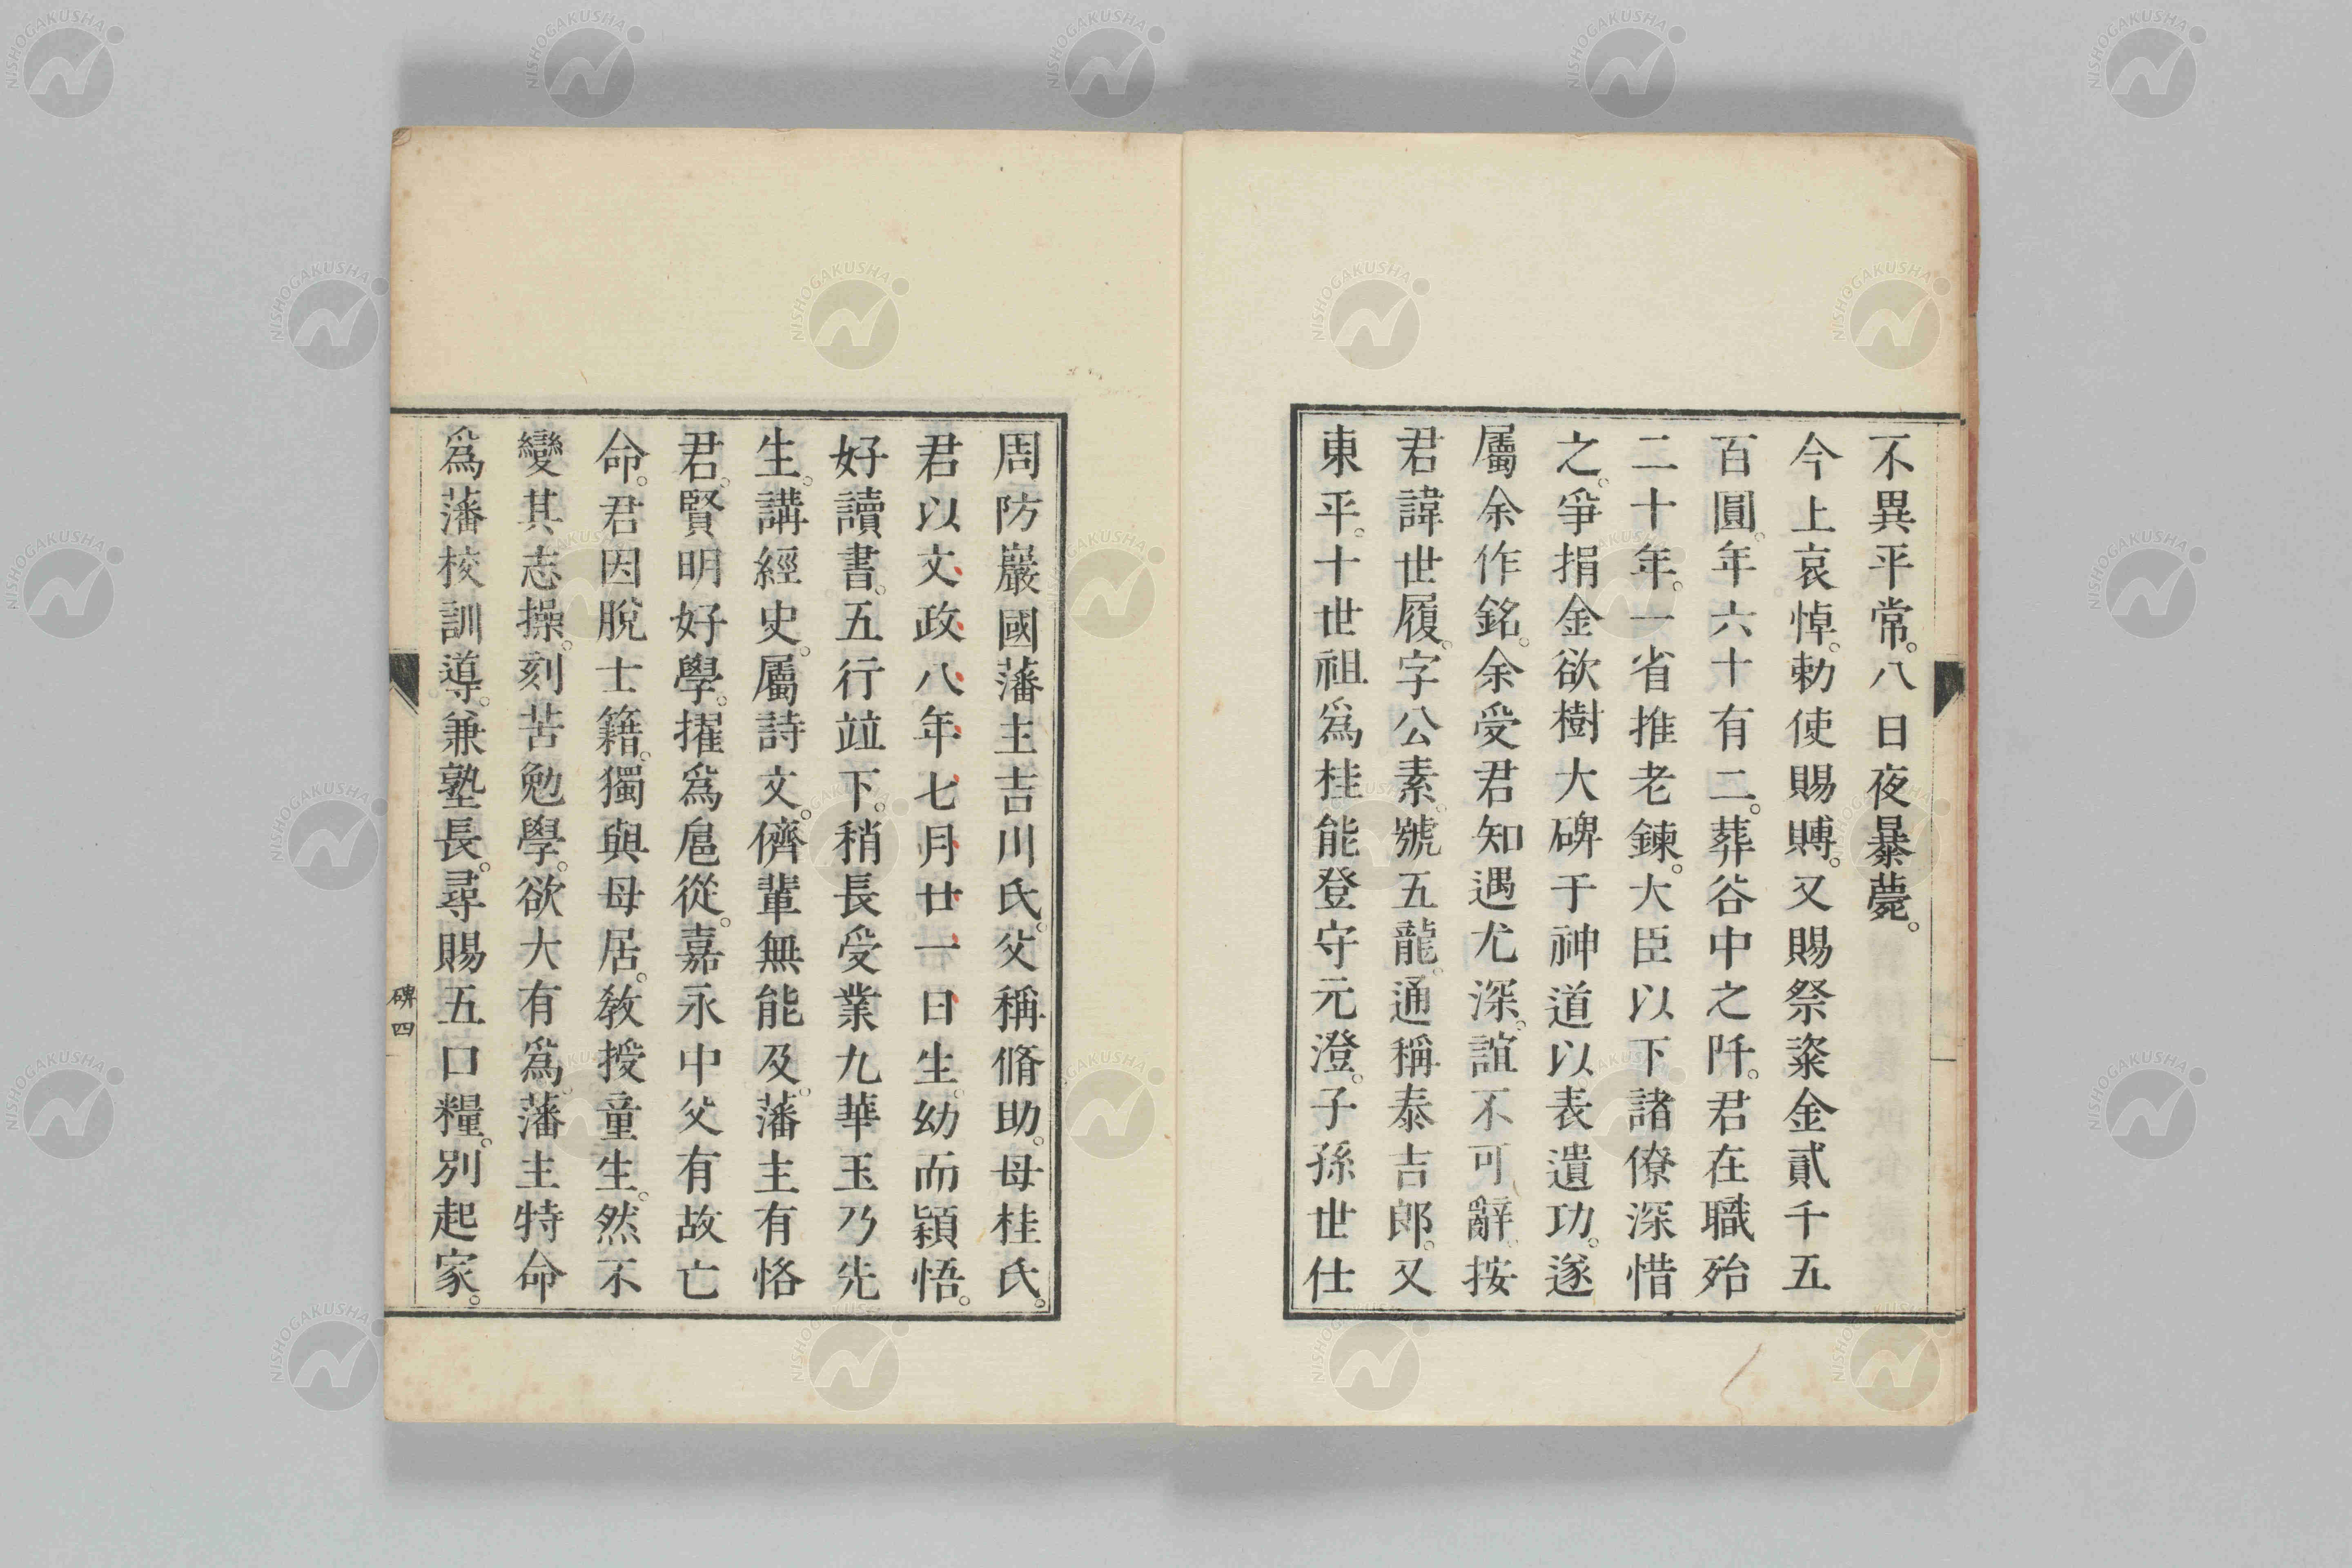 不異平常。八日夜暴薨。
今上哀悼。勅使賜賻。又賜祭粢金貳千五
百圓。年六十有二。葬谷中之阡。君在職殆
二十年。一省推老鍊。大臣以下諸僚深惜
之。爭捐金欲樹大碑于神道以表遺功。遂
屬余作銘。余受君知遇尤深。誼不可辭。按
君諱世履。字公素。號五龍。通稱泰吉郎。又
東平。十世祖爲桂能登守元澄。子孫世仕
周防巖國藩主吉川氏。父稱脩助。母桂氏。
君以文政八年七月廿一日生。幼而穎悟。
好讀書。五行竝下。稍長受業九華玉乃先
生。講經史。屬詩文。儕輩無能及。藩主有恪
君。賢明好學。擢爲扈從。嘉永中父有故亡
命。君因脫士籍。獨與母居。敎授童生。然不
變其志操。刻苦勉學。欲大有爲。藩主特命
爲藩校訓導。兼塾長。尋賜五口糧。別起家。
碑四
NISHOGAKUSHA